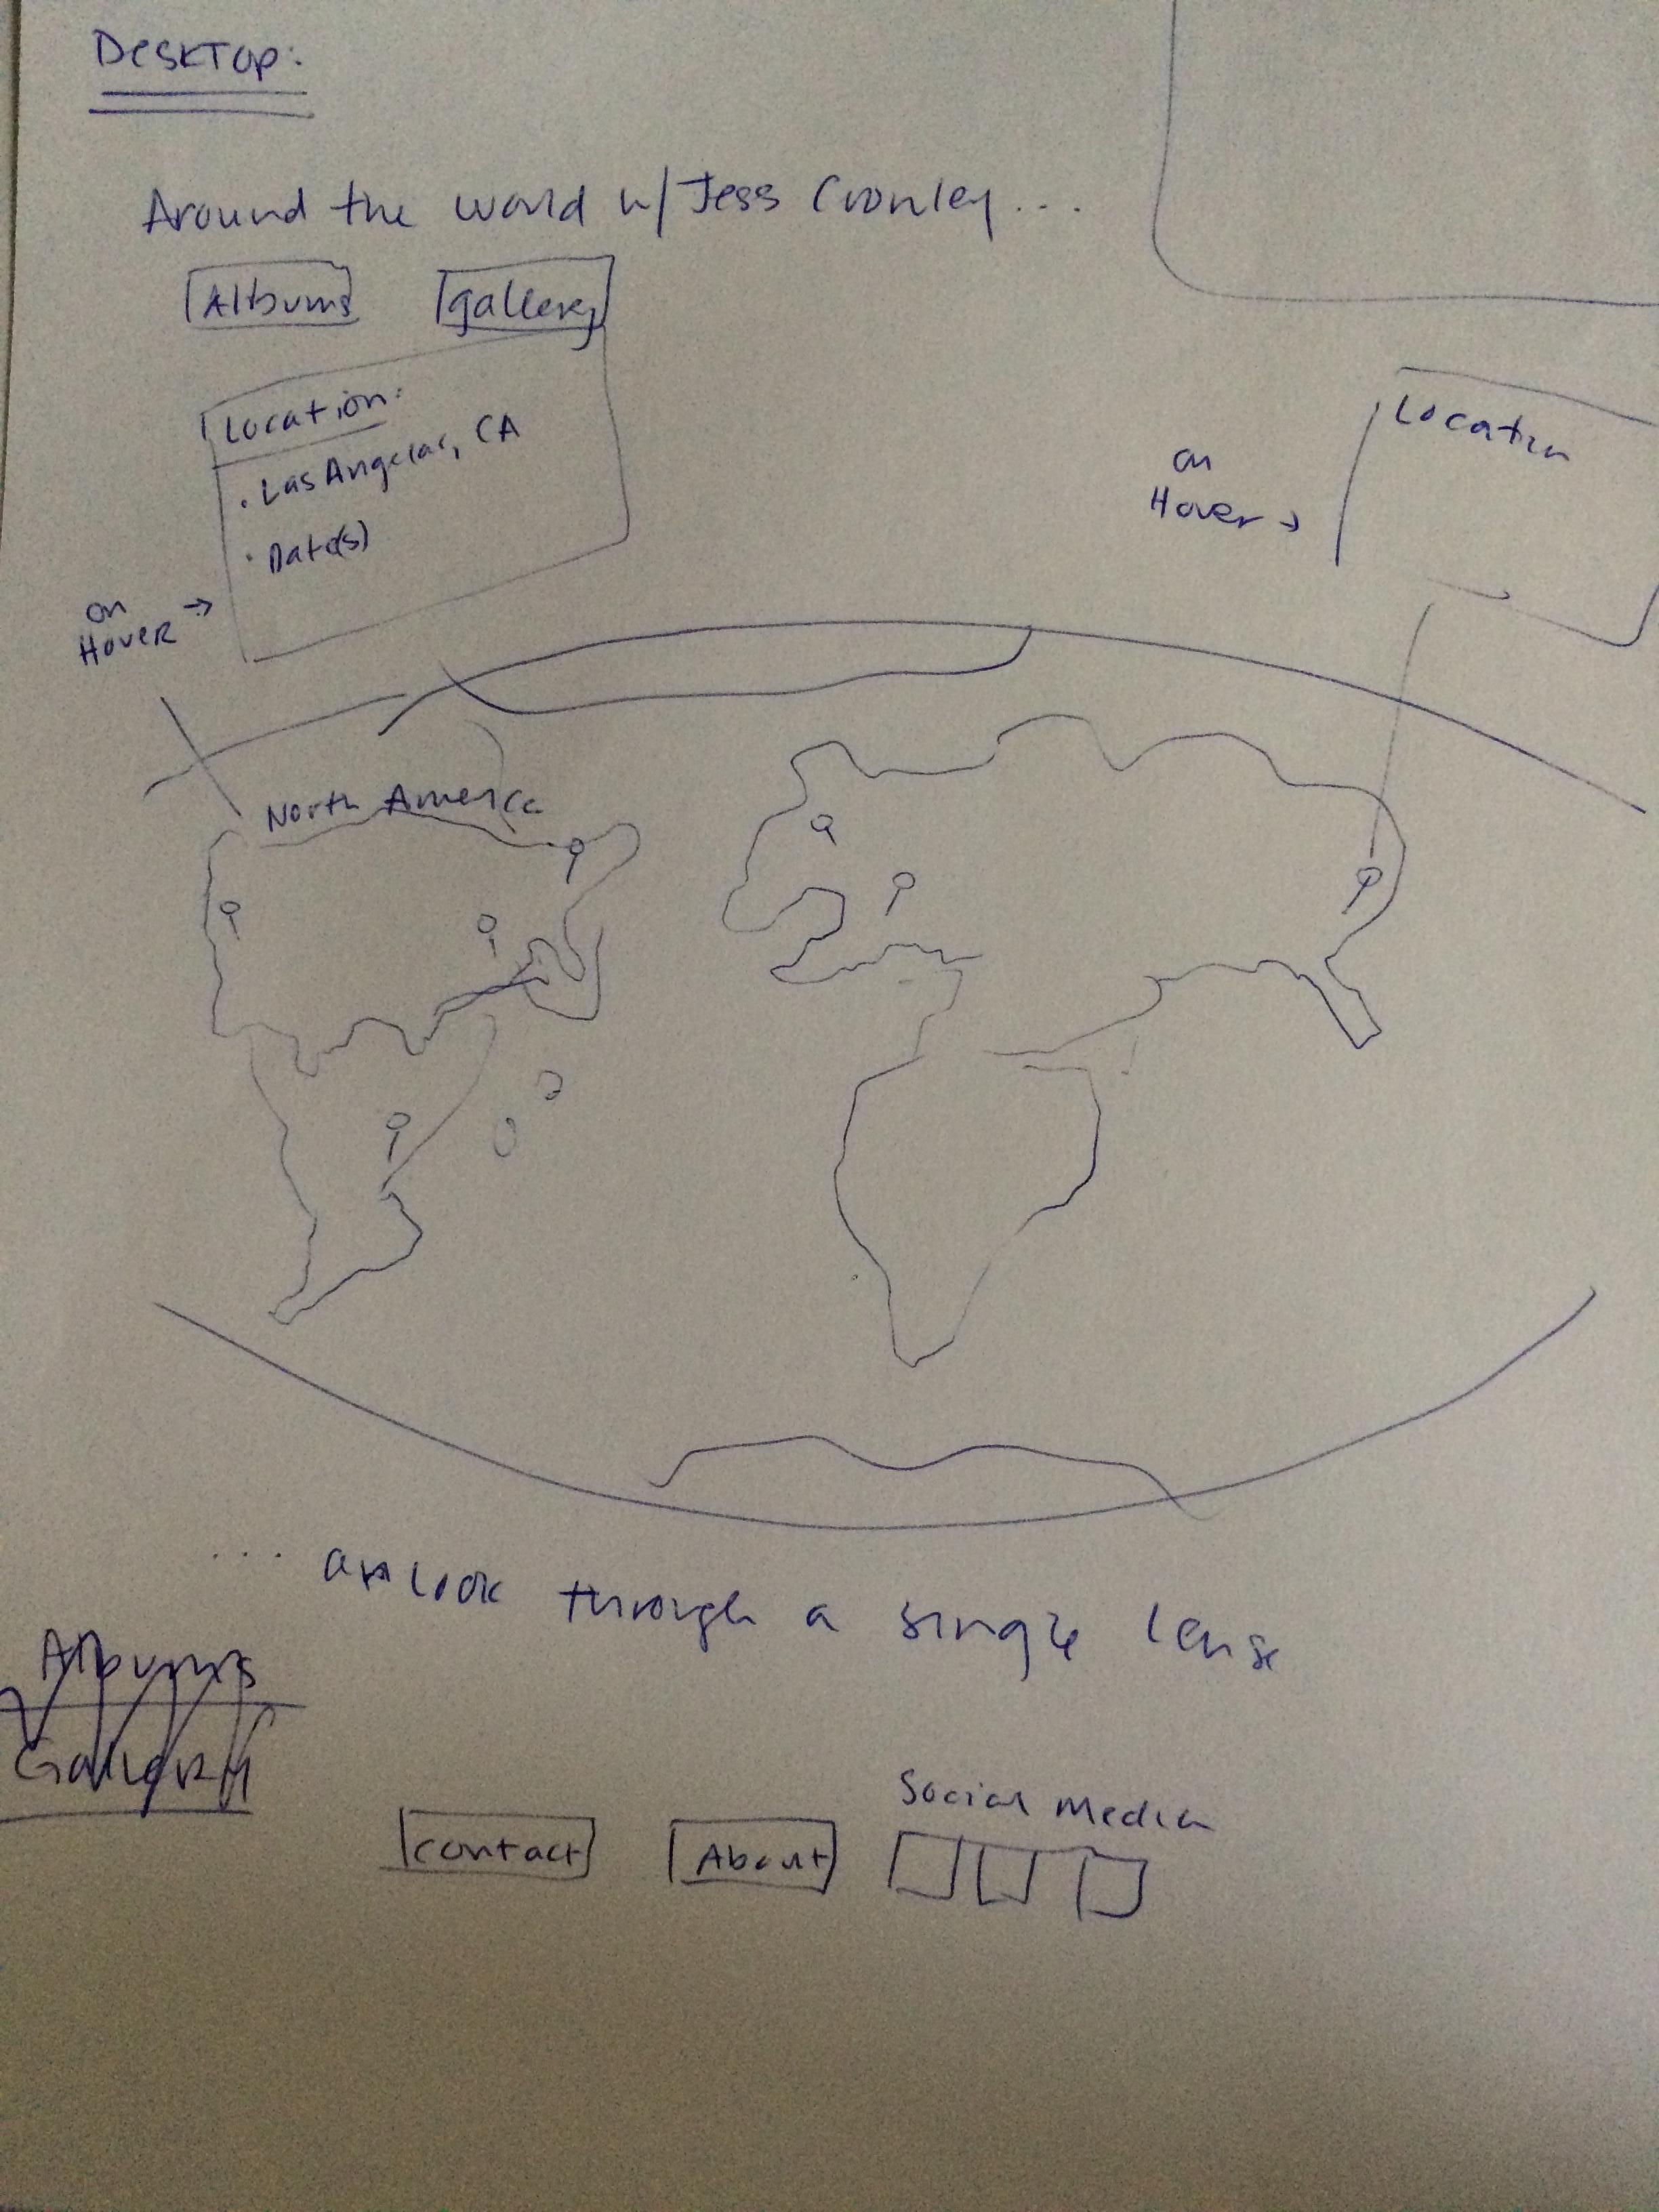 DESKTOP:
Around the world w/ Jess Cronley...
Albums
gallery
Location:
. Los Angelas, CA
· Date(s)
on
Hover →
Location
on
Hover →
North America
... look through a single lense
Albums
Gallery
Contact
About
Social Media